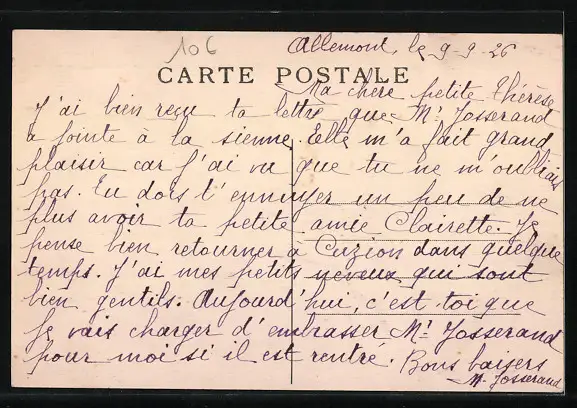 106
Allemont, le 9-9-26
CARTE POSTALE
Ma chère petite Thérèse
J'ai bien reçu ta lettre que Mr Josserand
a jointe à la sienne. Elle m'a fait grand
plaisir car j'ai vu que tu ne m'oubliais
pas. Tu dois t'ennuyer un peu de ne
plus avoir ta petite amie Clairette. Je
pense bien retourner à Cuzion dans quelque
temps. J'ai mes petits neveux qui sont
bien gentils. Aujourd'hui, c'est toi que
je vais charger d'embrasser Mr Josserand
pour moi si il est rentré. Bons baisers
M. Josserand